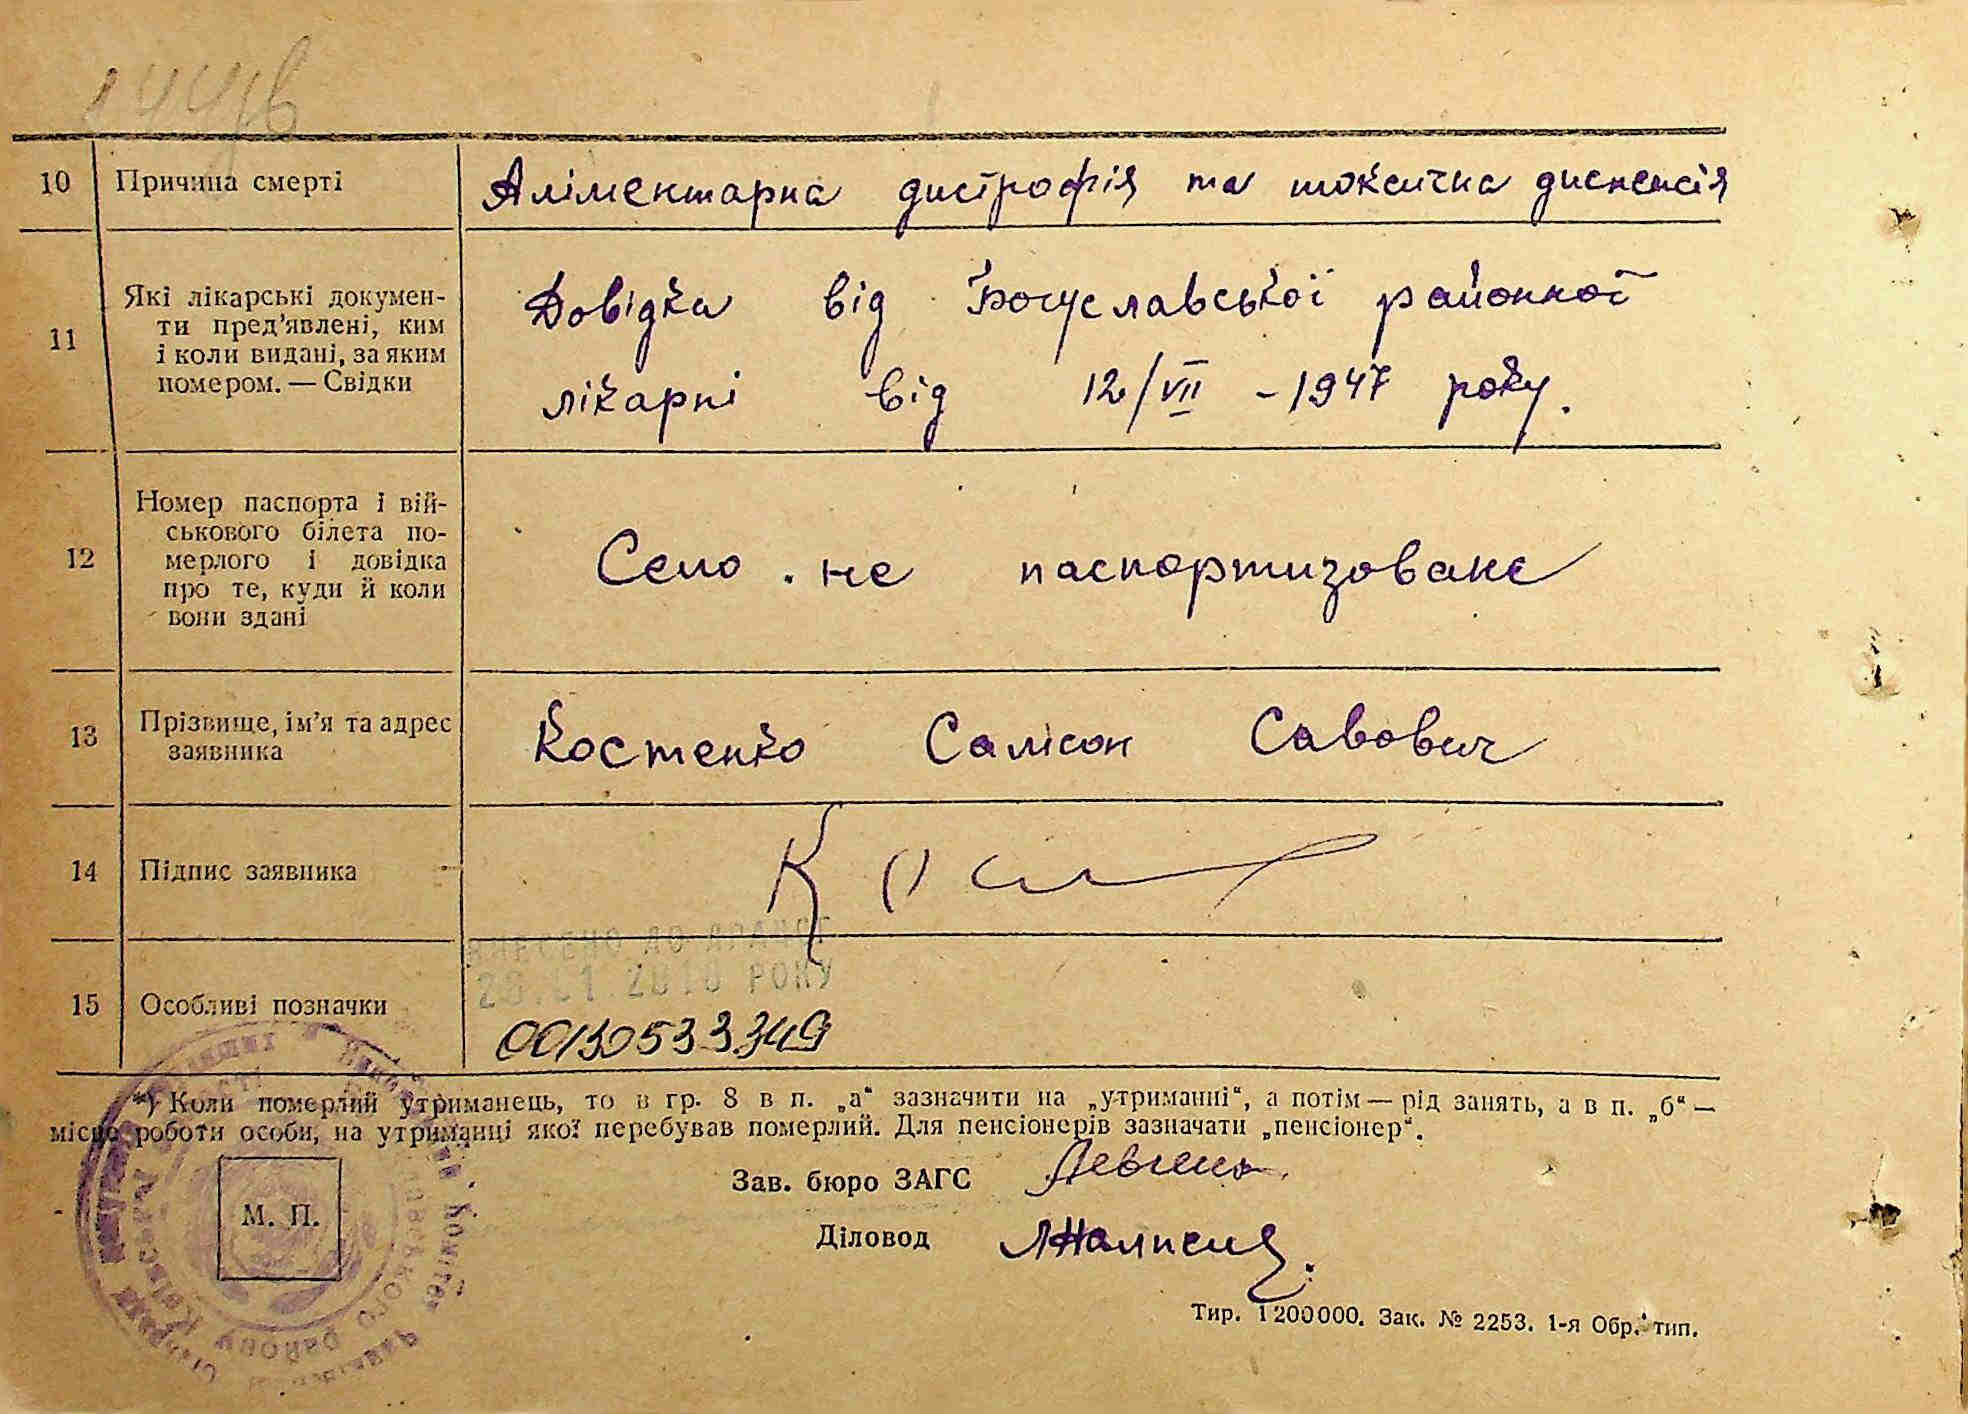 10 Причина смерті Аліментарна дистрофія та токсична диспепсія
11 Які лікарські докумен-
ти пред'явлені, ким
і коли видані, за яким
номером. — Свідки
Довідка від Богуславської районної
лікарні від 12/VII - 1947 року.
12 Номер паспорта і вій-
ськового білета по-
мерлого і довідка
про те, куди й коли
вони здані
Село не паспортизоване
13 Прізвище, ім'я та адрес
заявника
Костенко Самсон Савович
14 Підпис заявника
ВНЕСЕНО ДО ДРАЦСГ
РОКУ
15 Особливі позначки
00130533349
*) Коли померлий утриманець, то в гр. 8 в п. „а“ зазначити на „утриманні“, а потім — рід занять, а в п. „б“ —
місце роботи особи, на утриманні якої перебував померлий. Для пенсіонерів зазначати „пенсіонер“.
Зав. бюро ЗАГС
Діловод
М. П.
Тир. 1200000. Зак. № 2253. 1-я Обр. тип.